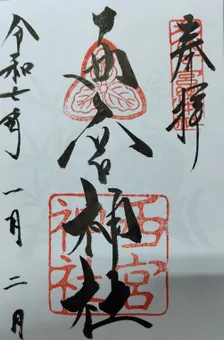 奉拝
西宮神社
西宮神社
令和七年一月二日